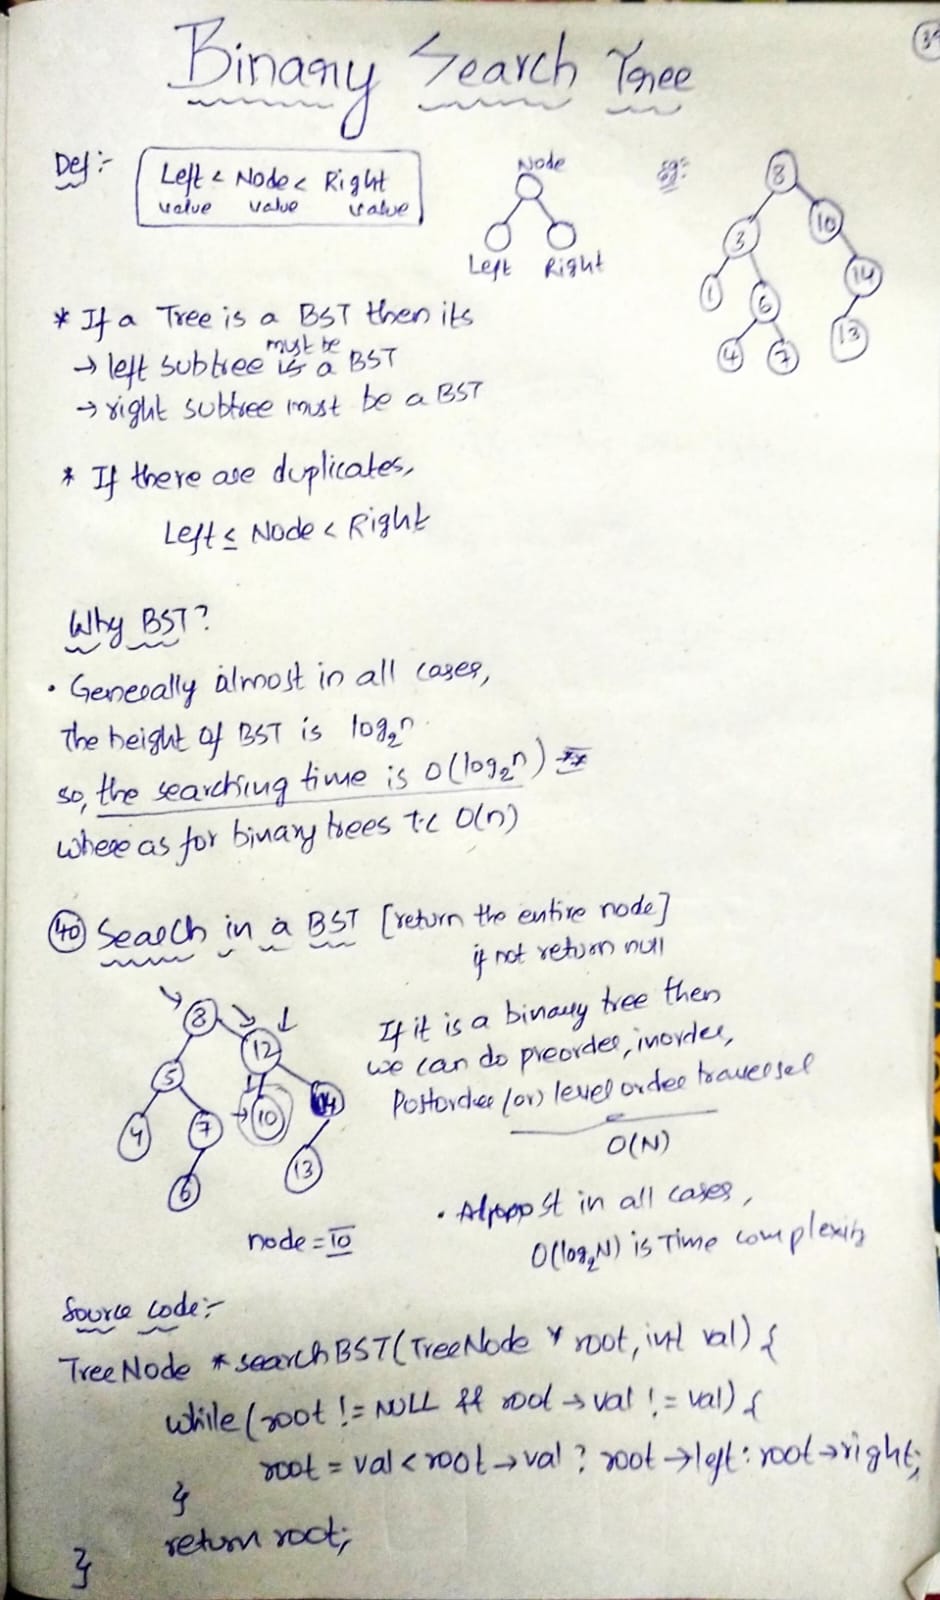 Binary Search Tree
Def :-
Left < Node < Right
value value value
Node
Left Right
eg:
8
3 10
1 6 14
4 7 13
* If a Tree is a BST then its
must be
→ left subtree is a BST
→ right subtree must be a BST
* If there are duplicates,
Left ≤ Node < Right
Why BST?
• Generally almost in all cases,
The height of BST is log₂n
so, the searching time is O(log₂n) **
where as for binary trees T.C O(n)
40 Search in a BST [return the entire node]
if not return null
8
12
5
4 7 10 14
6 13
node = 10
If it is a binary tree then
we can do preorder, inorder,
Postorder (or) level order traversel
O(N)
• Almost in all cases,
O(log₂N) is Time complexity
Source Code :-
TreeNode *searchBST(TreeNode * root, int val) {
while (root != NULL && root → val != val) {
root = val < root → val ? root → left : root → right;
}
return root;
}